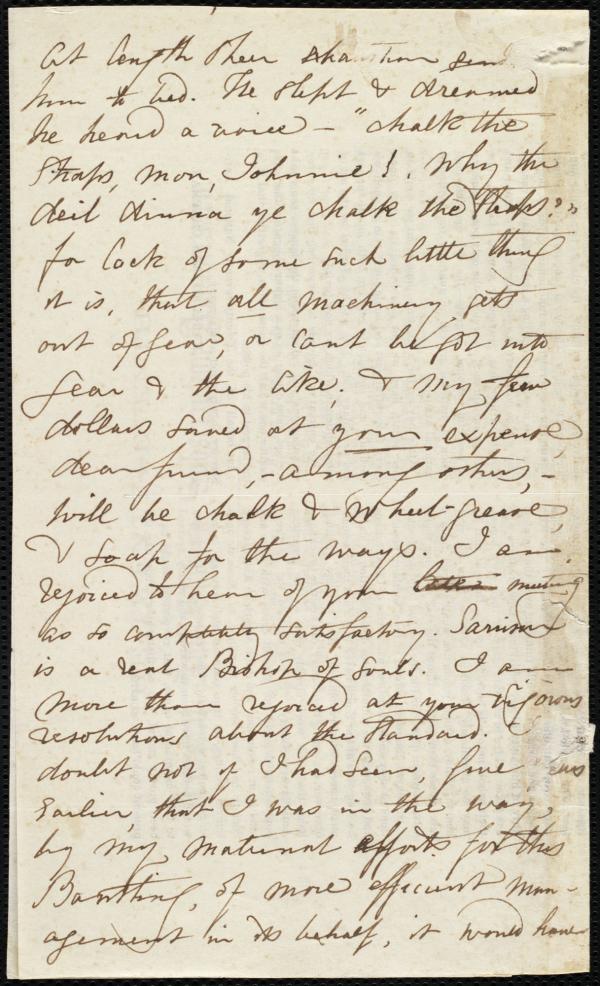 At length sheer exhaustion send
him to bed. He slept & dreamed
he heard a voice – "chalk the
Straps, mon, Johnnie! Why the
deil dinna ye chalk the straps?"
for lack of some such little thing
it is, that all machinery gets
out of gear, or cant be got into
gear & the like; & my few
dollars saved at your expense,
dear friend, – among others, –
will be chalk & wheel-grease,
& soap for the ways. I am
rejoiced to hear of your later meeting
as so completely satisfactory.
is a real Bishop of Souls. I am
more than rejoiced at your vigorous
resolutions about the Standard. I
doubt not if I had seen, five
Earlier, that I was in the way,
by my maternal efforts for this
Bantling, of more efficient man-
agement in its behalf, it would have